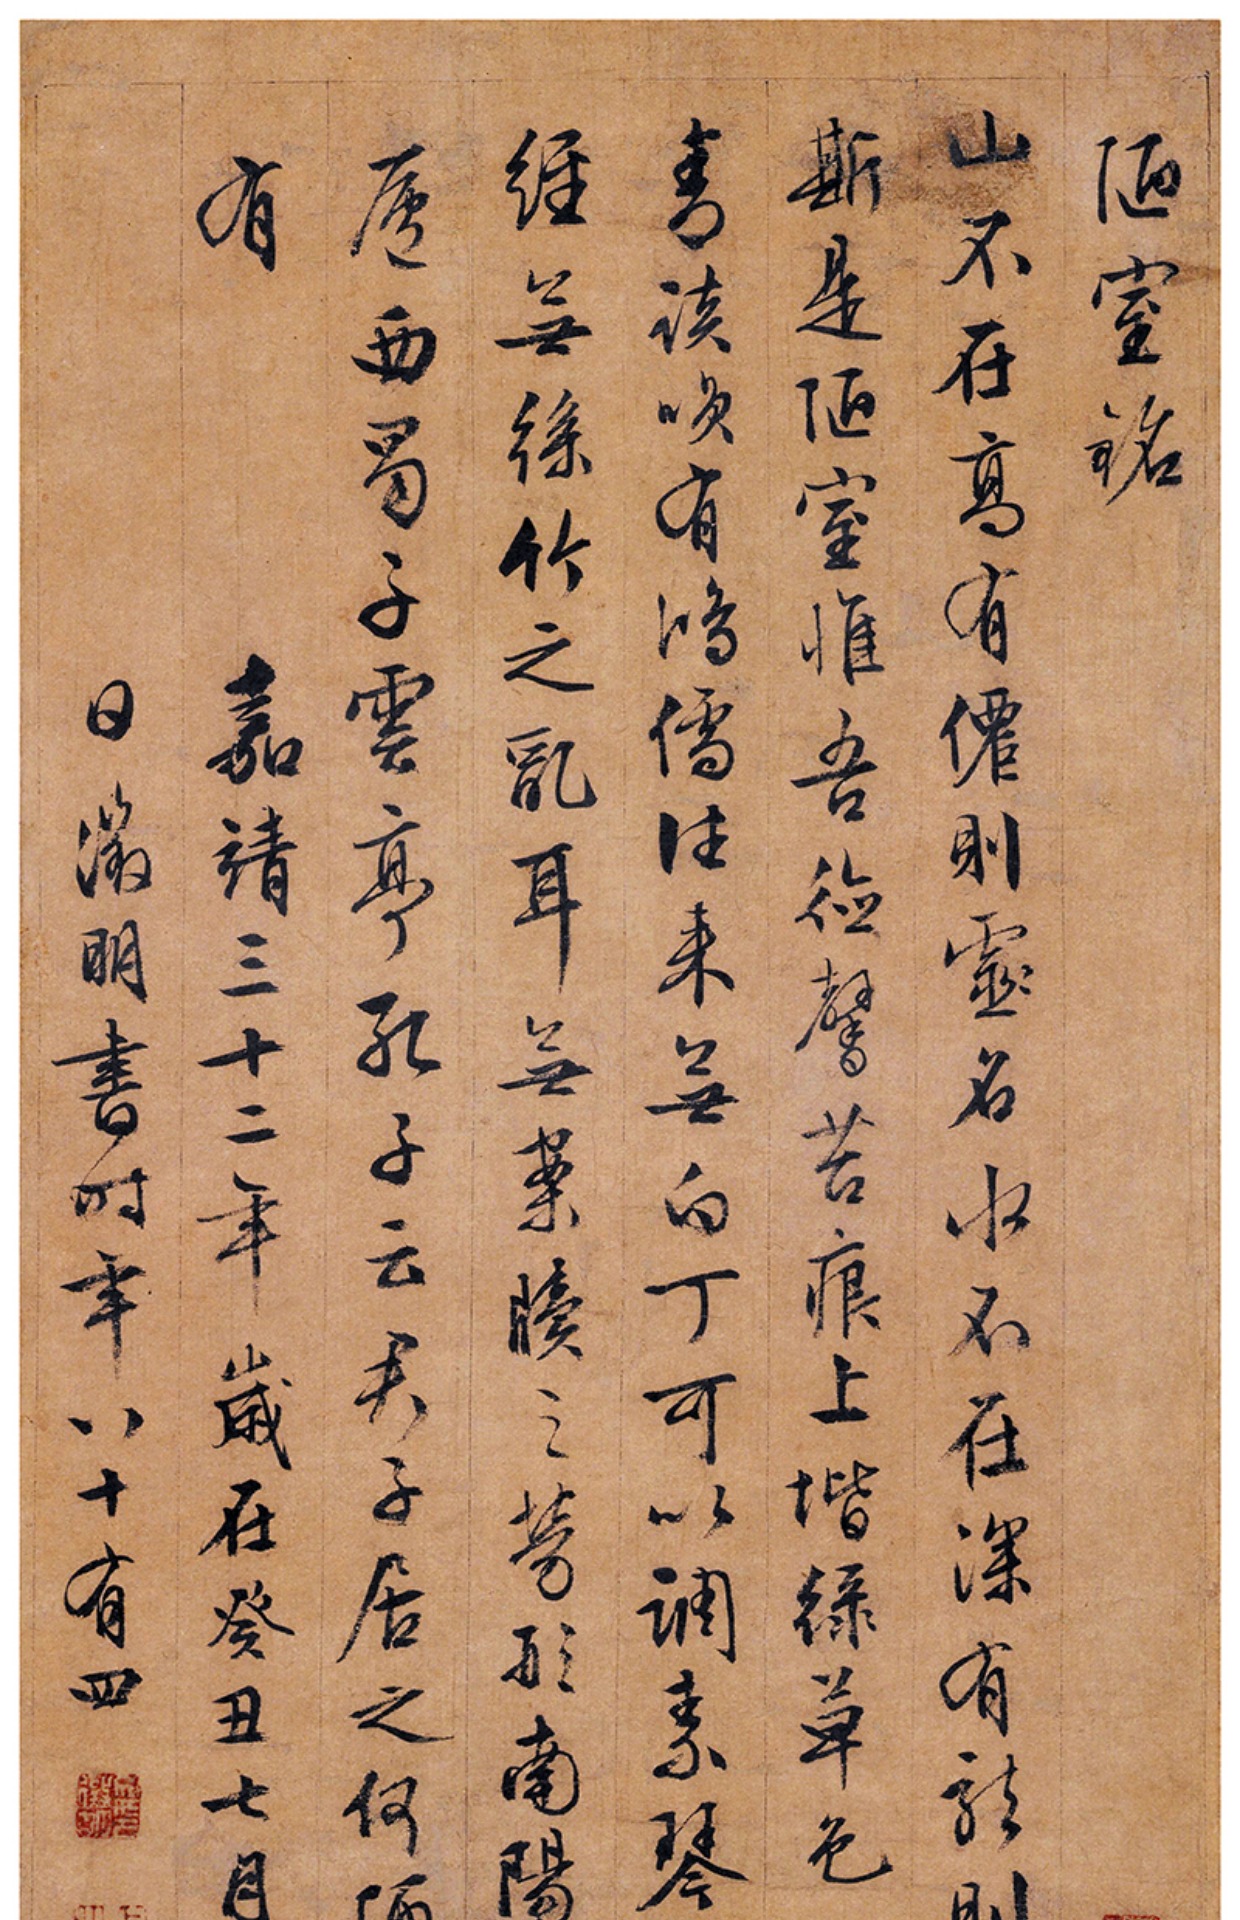 陋室銘
山不在高有僊則靈名水不在深有龍則
斯是陋室惟吾德馨苔痕上堦綠草色
青談唄有鴻儒往来無白丁可以調素琴
經無絲竹之亂耳無案牘之勞形南陽
廬西蜀子雲亭孔子云君子居之何陋
有
嘉靖三十二年歲在癸丑七月
日徵明書時年八十有四